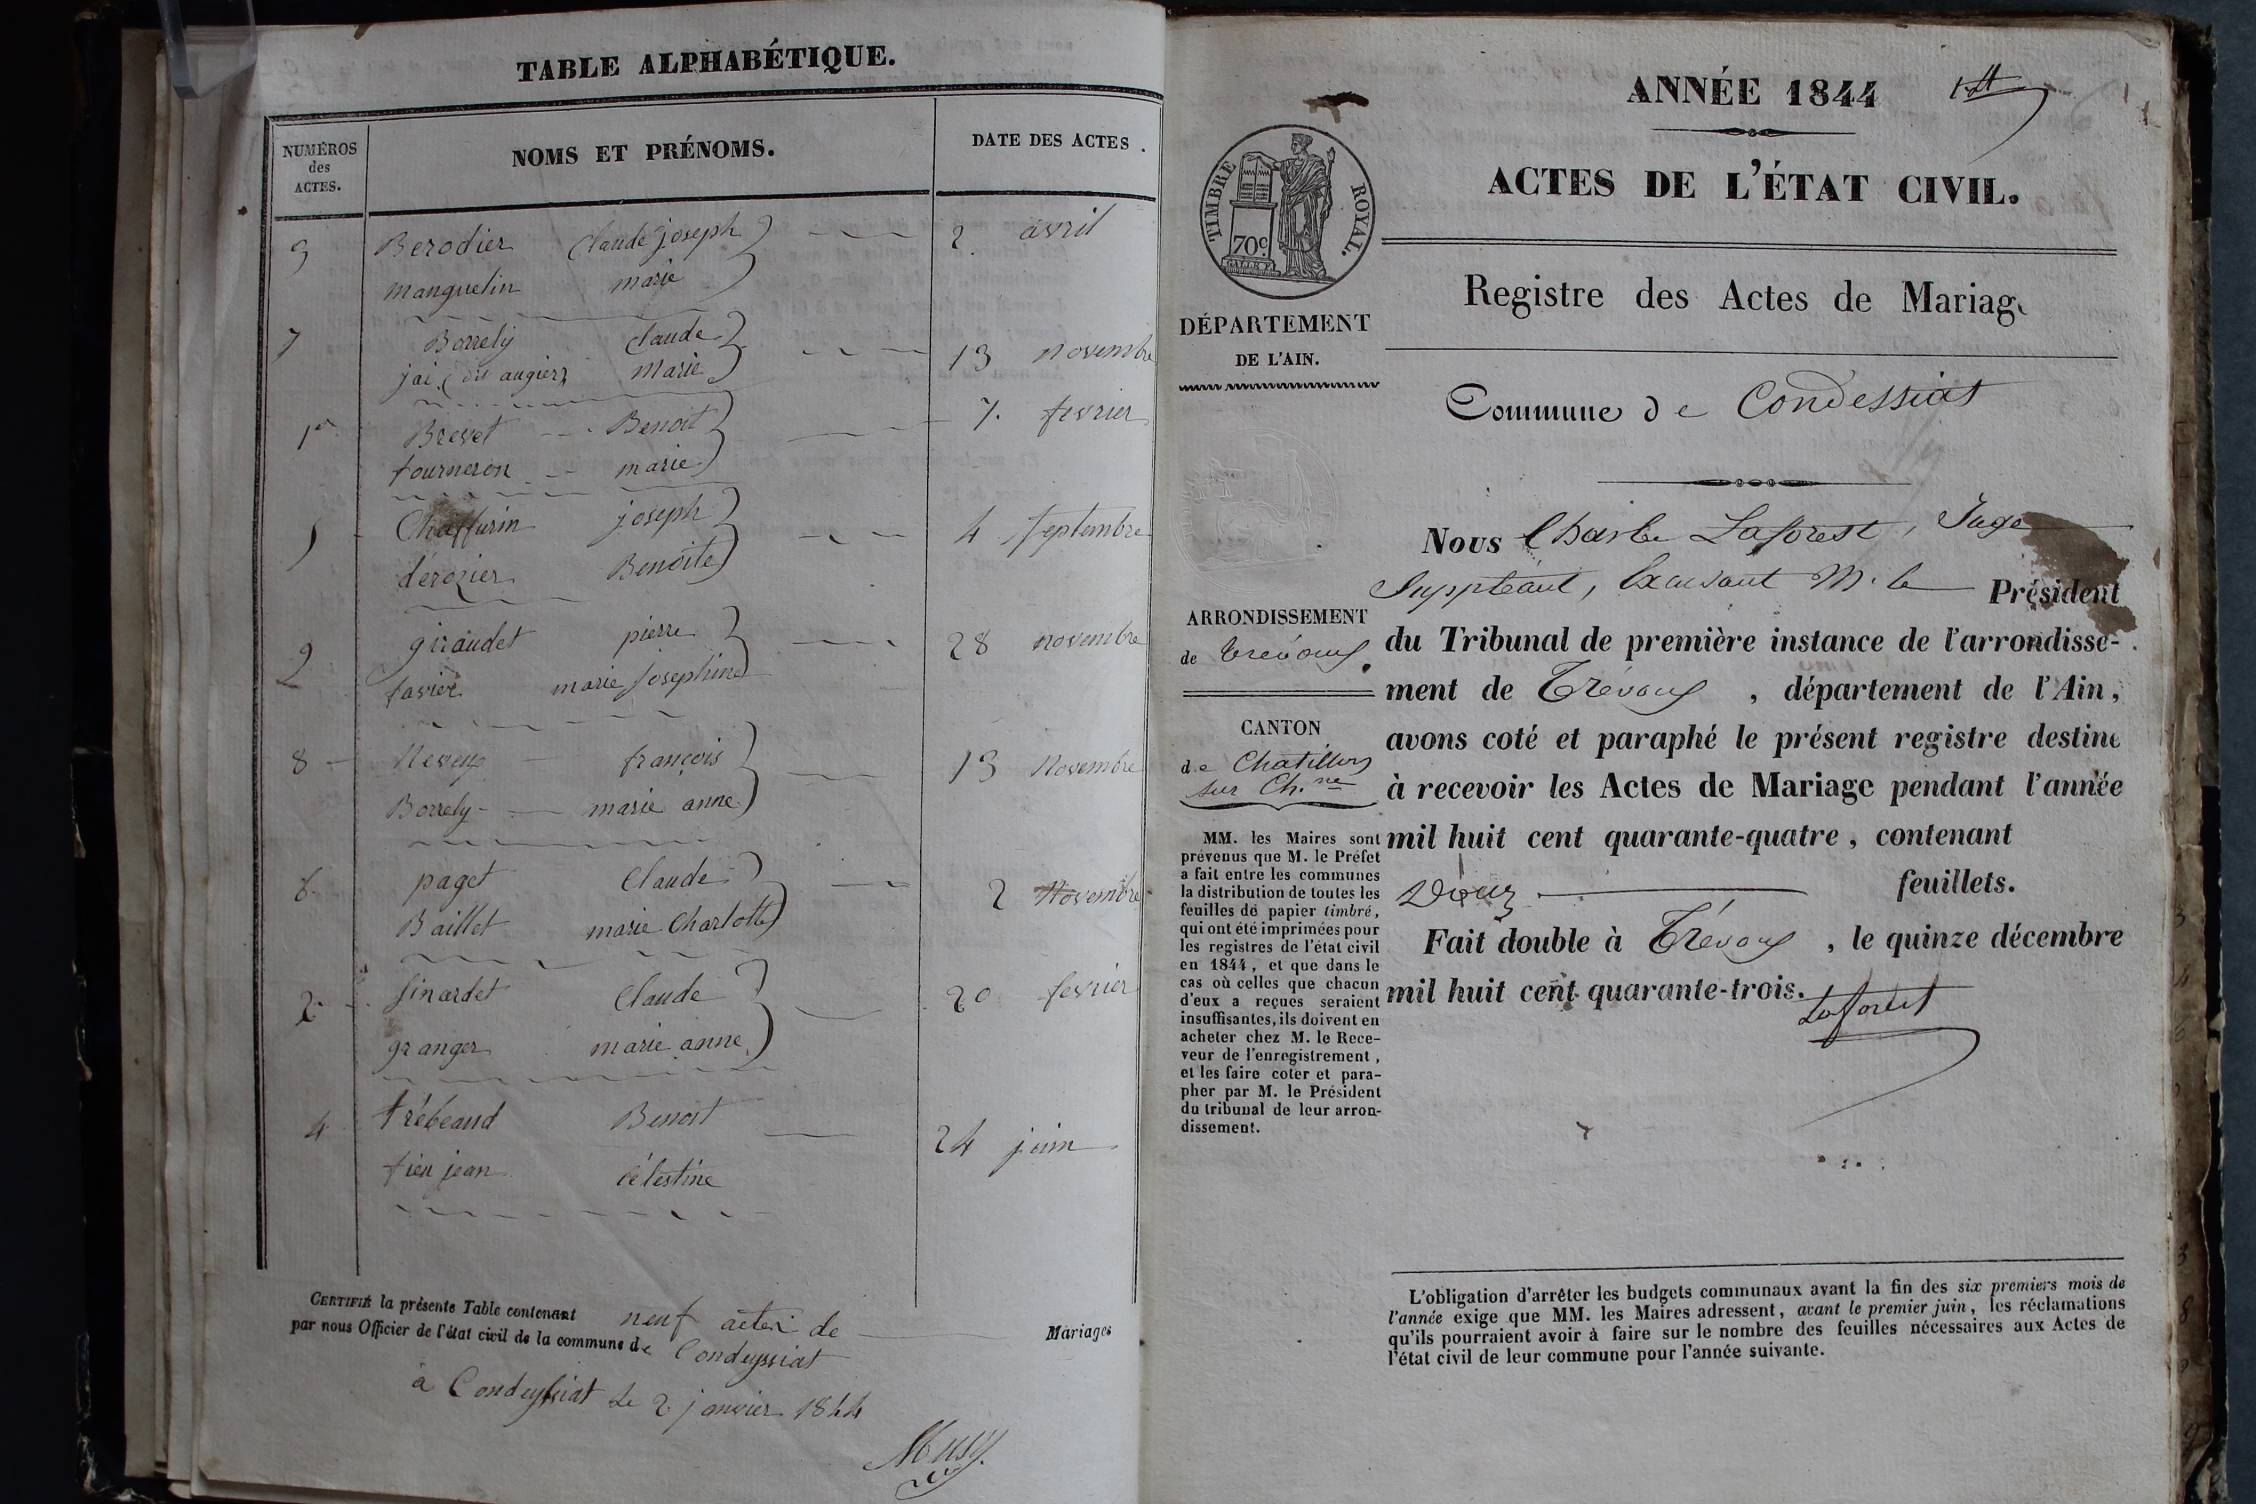 TABLE ALPHABÉTIQUE.
NUMÉROS
des
ACTES.
NOMS ET PRÉNOMS.
DATE DES ACTES.
3 Berodier Claude joseph 2. avril
manguelin marie
7 Borrely Claude 13 novembre
jai (dit augier) Marie
1er Brevet Benoit 7. fevrier
tourneron marie
5 Chaffurin joseph 4 septembre
dérozier Benoite
9 giraudet pierre 28 novembre
favier marie Josephine
8 Neveux françois 13 Novembre
Borrely marie anne
6 paget Claude 2 Novembre
Baillet marie Charlotte
2 Sinardet Claude 20 fevrier
granger marie anne
4 trébeaud Benoit 24 juin
tieu jean célestine
CERTIFIÉ la présente Table contenant neuf actes de Mariages
par nous Officier de l'état civil de la commune de Condeyssiat
à Condeyssiat Le 2 janvier 1844
Musy
ANNÉE 1844
ACTES DE L'ÉTAT CIVIL.
TIMBRE ROYAL.
70c.
DÉPARTEMENT
DE L'AIN.
Registre des Actes de Mariage
Commune de Condessiat
Nous Charles Laforest, Juge
Suppléant, Excusant M. le Président
du Tribunal de première instance de l'arrondisse-
ment de Trévoux, département de l'Ain,
avons coté et paraphé le présent registre destiné
à recevoir les Actes de Mariage pendant l'année
mil huit cent quarante-quatre, contenant
feuillets.
Fait double à Trévoux, le quinze décembre
mil huit cent quarante-trois.
Laforest
ARRONDISSEMENT
de Trévoux
CANTON
de Chatillon
sur Ch.ne
MM. les Maires sont
prévenus que M. le Préfet
a fait entre les communes
la distribution de toutes les
feuilles de papier timbré,
qui ont été imprimées pour
les registres de l'état civil
en 1844, et que dans le
cas où celles que chacun
d'eux a reçues seraient
insuffisantes, ils doivent en
acheter chez M. le Rece-
veur de l'enregistrement,
et les faire coter et para-
pher par M. le Président
du tribunal de leur arron-
dissement.
L'obligation d'arrêter les budgets communaux avant la fin des six premiers mois de
l'année exige que MM. les Maires adressent, avant le premier juin, les réclamations
qu'ils pourraient avoir à faire sur le nombre des feuilles nécessaires aux Actes de
l'état civil de leur commune pour l'année suivante.